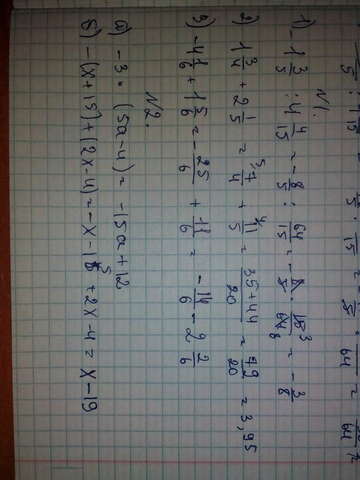 N1.
1) -1 3/5 : 4 4/15 = -8/5 : 64/15 = -8/5 · 15/64 = -3/8
2) 1 3/4 + 2 1/5 = 7/4 + 11/5 = 35+44/20 = 79/20 = 3,95
3) -4 1/6 + 1 5/6 = -25/6 + 11/6 = -14/6 - 2 2/6
N2.
а) -3 · (5a-4) = -15a+12
б) -(x+15)+(2x-4) = -x-15+2x-4 = x-19